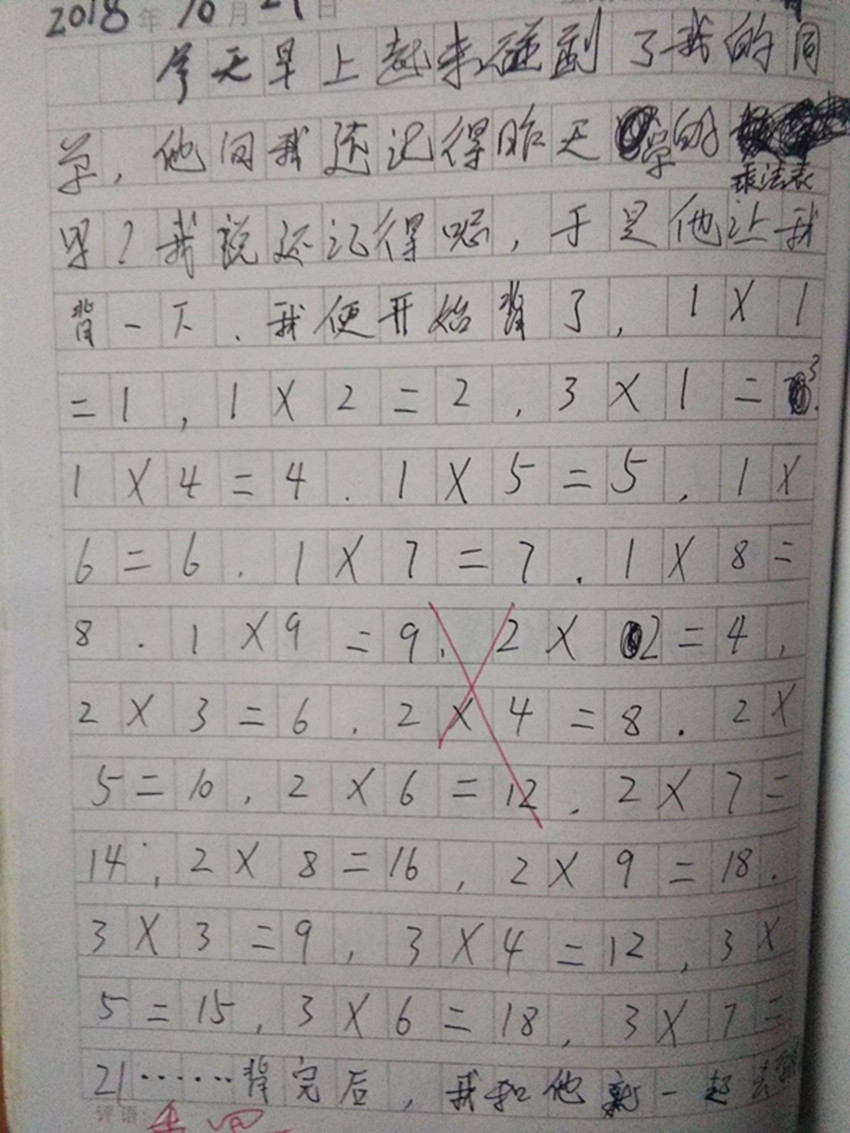 2018年10月29日
今天早上起来碰到了我的同
学，他问我还记得昨天学的
乘法表
吗？我说还记得呢，于是他让我
背一下．我便开始背了，1X1
=1，1X2=2．3X1=3.
1X4=4．1X5=5，1X
6=6．1X7=7．1X8=
8．1X9=9．2X2=4，
2X3=6．2X4=8．2X
5=10，2X6=12．2X7=
14，2X8=16，2X9=18．
3X3=9，3X4=12，3X
5=15，3X6=18，3X7=
21……背完后，我和他就一起去
评语：重写